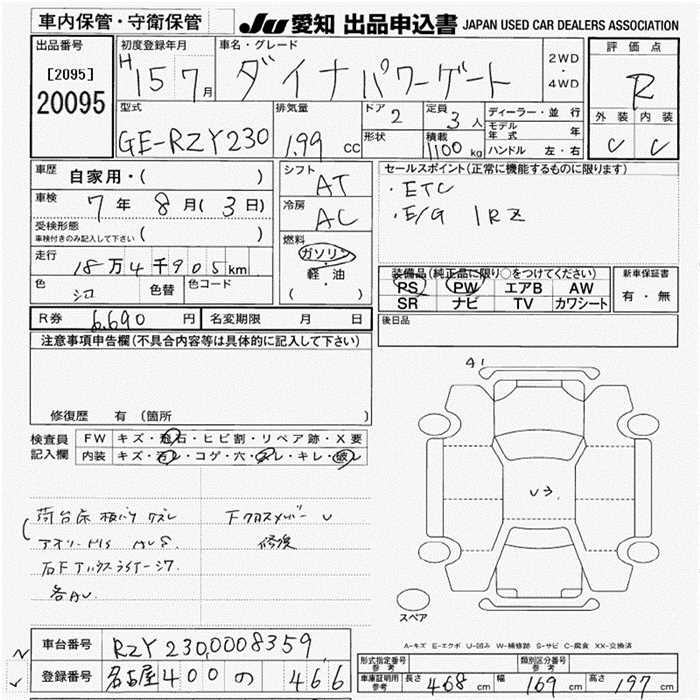 車内保管・守衛保管
JU 愛知 出品申込書 JAPAN USED CAR DEALERS ASSOCIATION
出品番号
[2095]
20095
初度登録年月
H 15 7月
車名・グレード
ダイナパワーゲート
2WD
・
4WD
評価点
R
外装 内装
C C
型式
GE-RZY230
排気量
1.99 cc
ドア
2
定員
3 人
形状
積載
1100 kg
ディーラー・並行
モデル年式 年
ハンドル 左・右
車歴
自家用・( )
車検
7年 8月(3日)
受検形態
車検付きのみ記入して下さい ( )
走行
18万4千905km
色
シロ
色替
色コード
シフト
AT
冷房
AC
燃料
ガソリン
・
軽・油
( ・ )
セールスポイント(正常に機能するものに限ります)
・ETC
・E/G 1RZ
装備品(純正品に限り○をつけてください)
PS PW エアB AW
SR ナビ TV カワシート
新車保証書
有・無
R券 6,690 円
名変期限 月 日
後日品
注意事項申告欄(不具合内容等は具体的に記入して下さい)
修復歴 有 (箇所 )
検査員
記入欄
FW キズ・飛石・ヒビ割・リペア跡・X要
内装 キズ・汚レ・コゲ・穴・スレ・キレ・破レ
荷台床
下クロスメンバー U
修復
各AU
A1
U3
スペア
A-キズ E-エクボ U-凹み W-補修跡 S-サビ C-腐食 XX-交換済
車台番号 RZY230,0008359
登録番号 名古屋 400 の 46,6
形式指定番号
参考
類別区分番号
参考
車庫証明用
参考
長さ 468 cm 幅 169 cm 高さ 197 cm